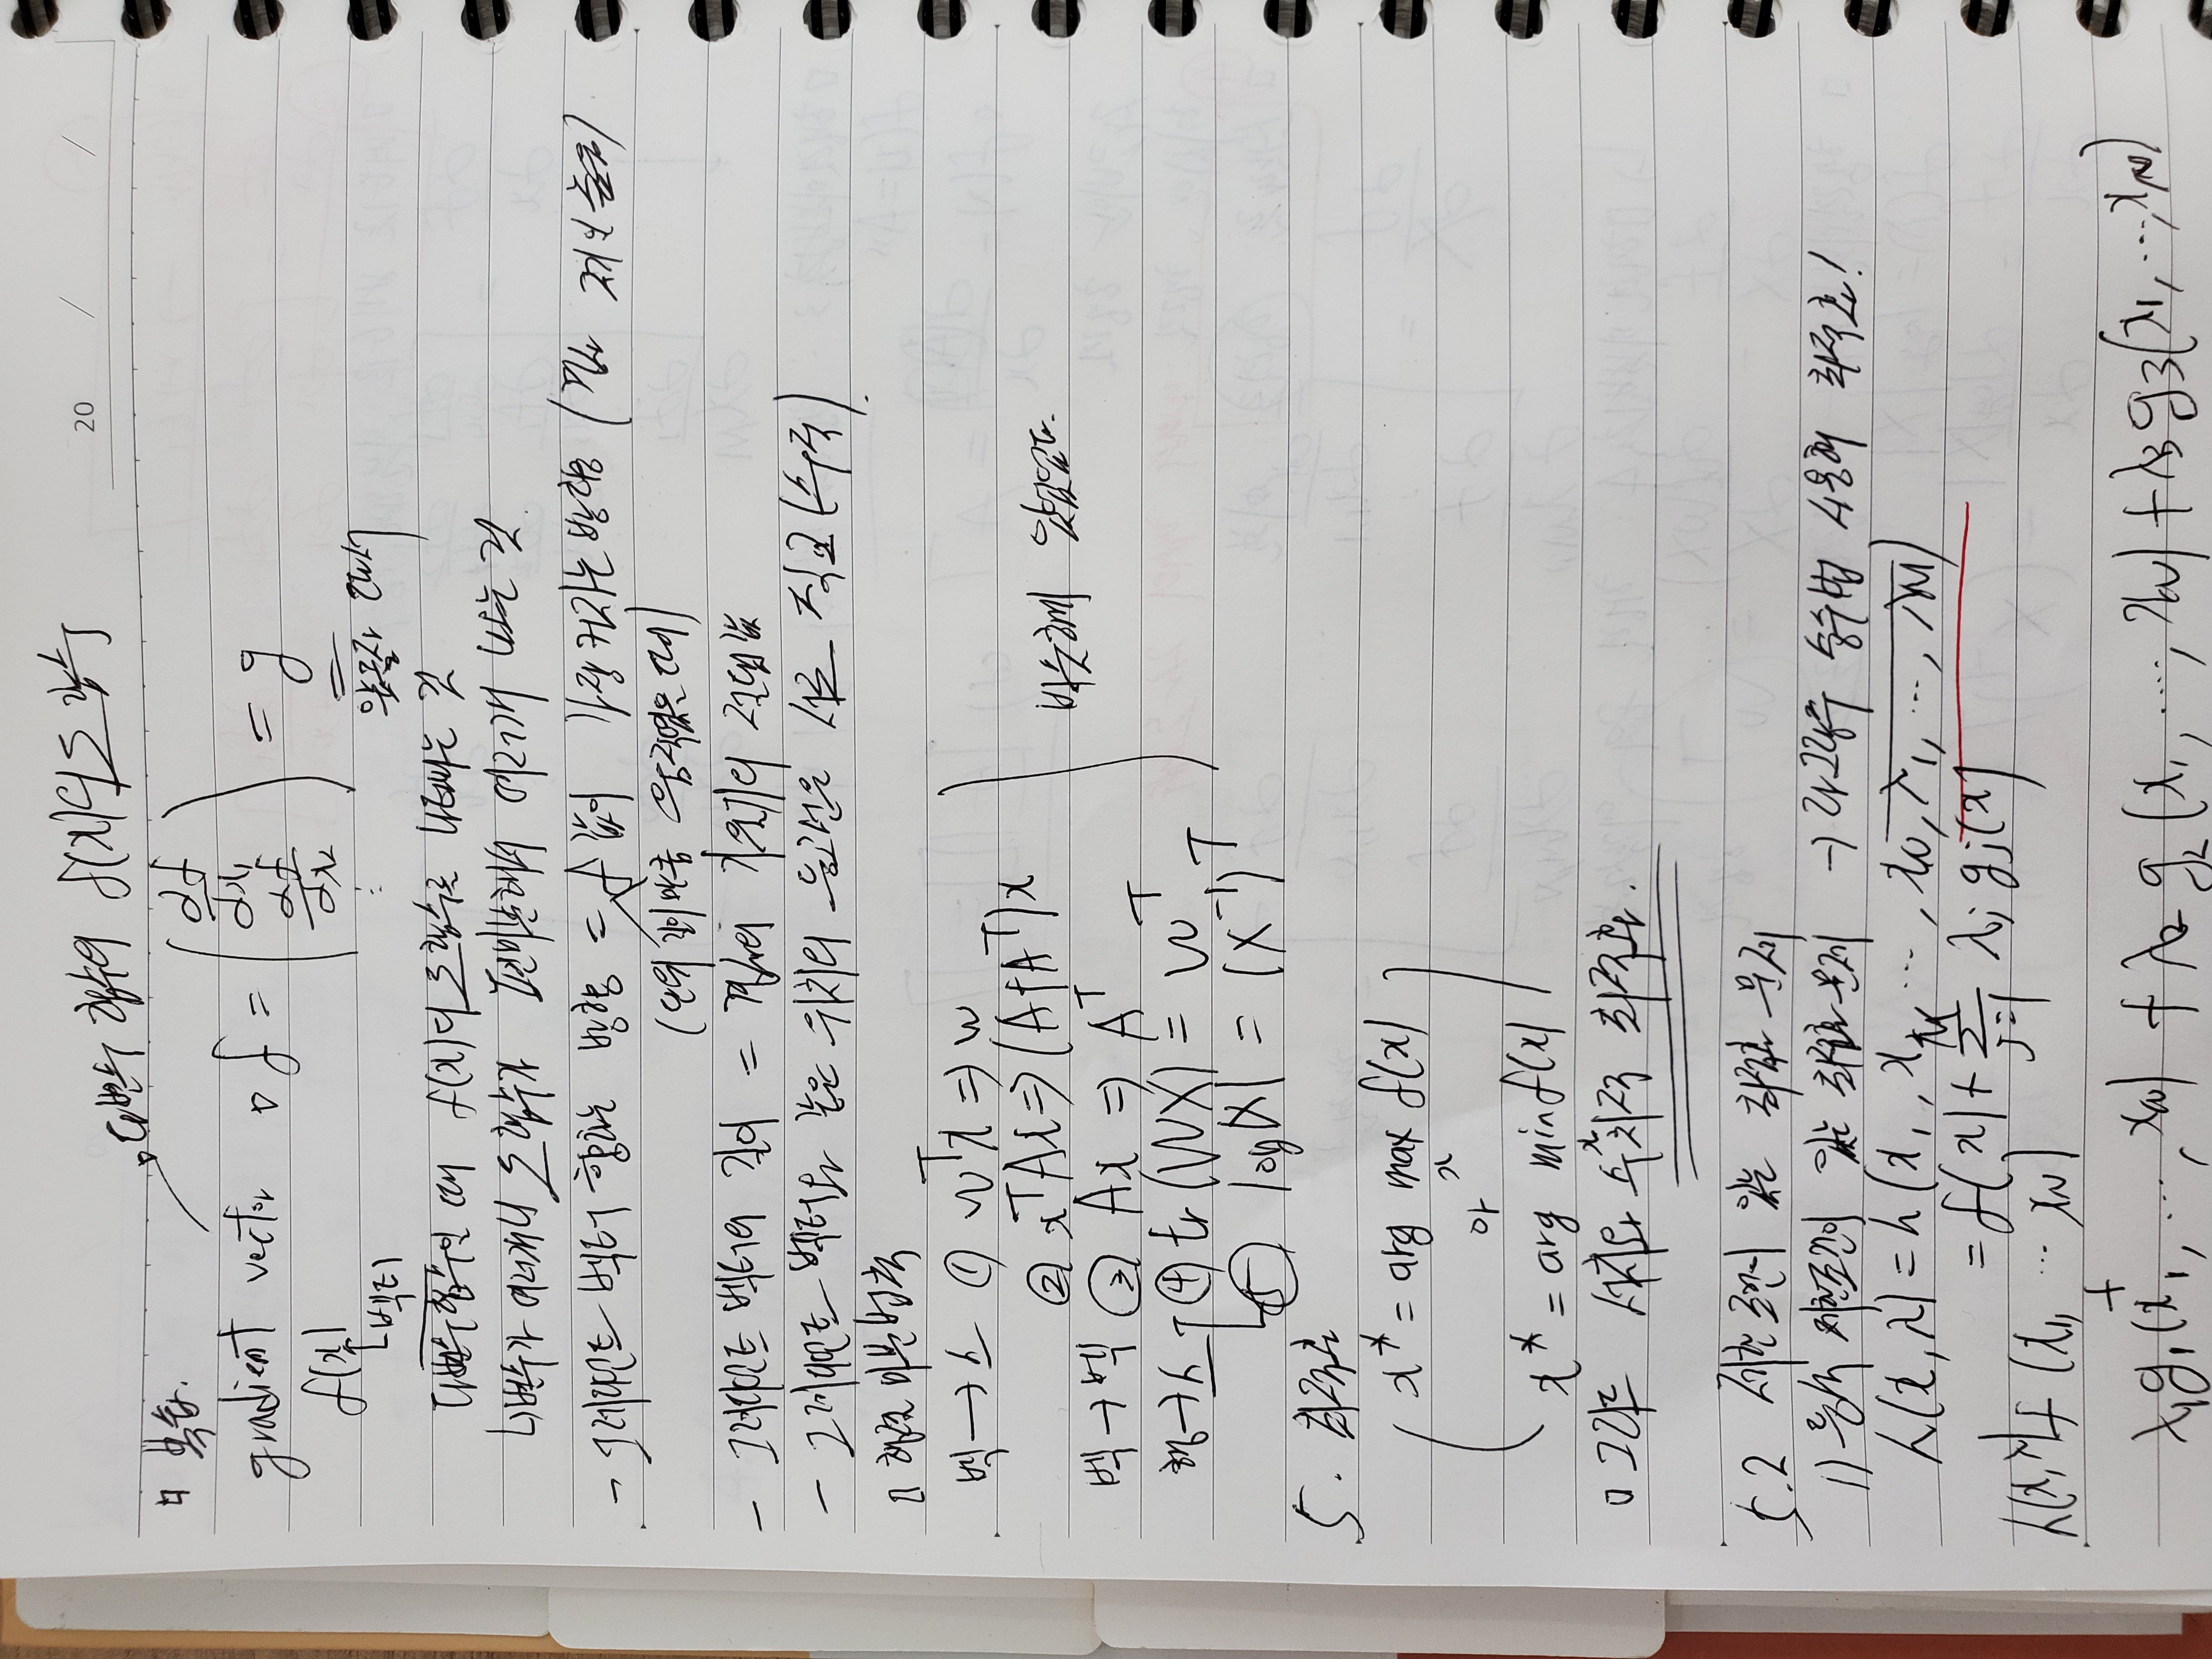 20 / /
다변수 함수의 f(x)의 도함수
□ 복습.
gradient vector ▽ f = ( ∂f/∂x₁ ∂f/∂x₂ ⋮ ) = g
f(x)
벡터
약물자 로써
다변수함수일 때 f(x)의 도함수로 나타내는 것
↳변수가 여러개니 도함수가 편미분해서 여러개 나오는 것.
- 그레디언트 벡터 향하는 방향 = f 값이 가장 커지는 방향 (경사 제일 높은)
(단위 길이만큼 움직였을 때)
- 그레디언트 벡터의 길이 = 경사의 기울기의 절댓값
- 그레디언트 벡터와 같은 위치의 등고선은 서로 직교(수직).
□ 행렬 미분법칙
벡→스 ① wᵀx ⇒ w
② xᵀAx ⇒ (A+Aᵀ)x
벡→벡 ③ Ax ⇒ Aᵀ
행→스 ④ tr (WX) = Wᵀ
⑤ log|X| = (X⁻¹)ᵀ
5. 최적화
x* = arg max f(x)
x
or
x* = arg min f(x)
x
□ 그리드 서치와 수치적 최적화.
5.2 제한조건이 있는 최적화 문제
1) 등식 제한조건이 있는 최적화 문제 → 라그랑주 승수법 사용해 최적화!
h(x, λ) = h (x₁, x₂, ⋯, x_N, λ₁, ⋯, λ_M)
= f(x) + Σ_{j=1}^{M} λⱼ gⱼ(x)
h(x, λ)= f (x₁, ⋯ x_N)
+
λ₁g₁(x₁, ⋯, x_N) + λ₂ g₂ (x₁, ⋯, x_N) + λ₃ g₃(x₁, ⋯, x_N)